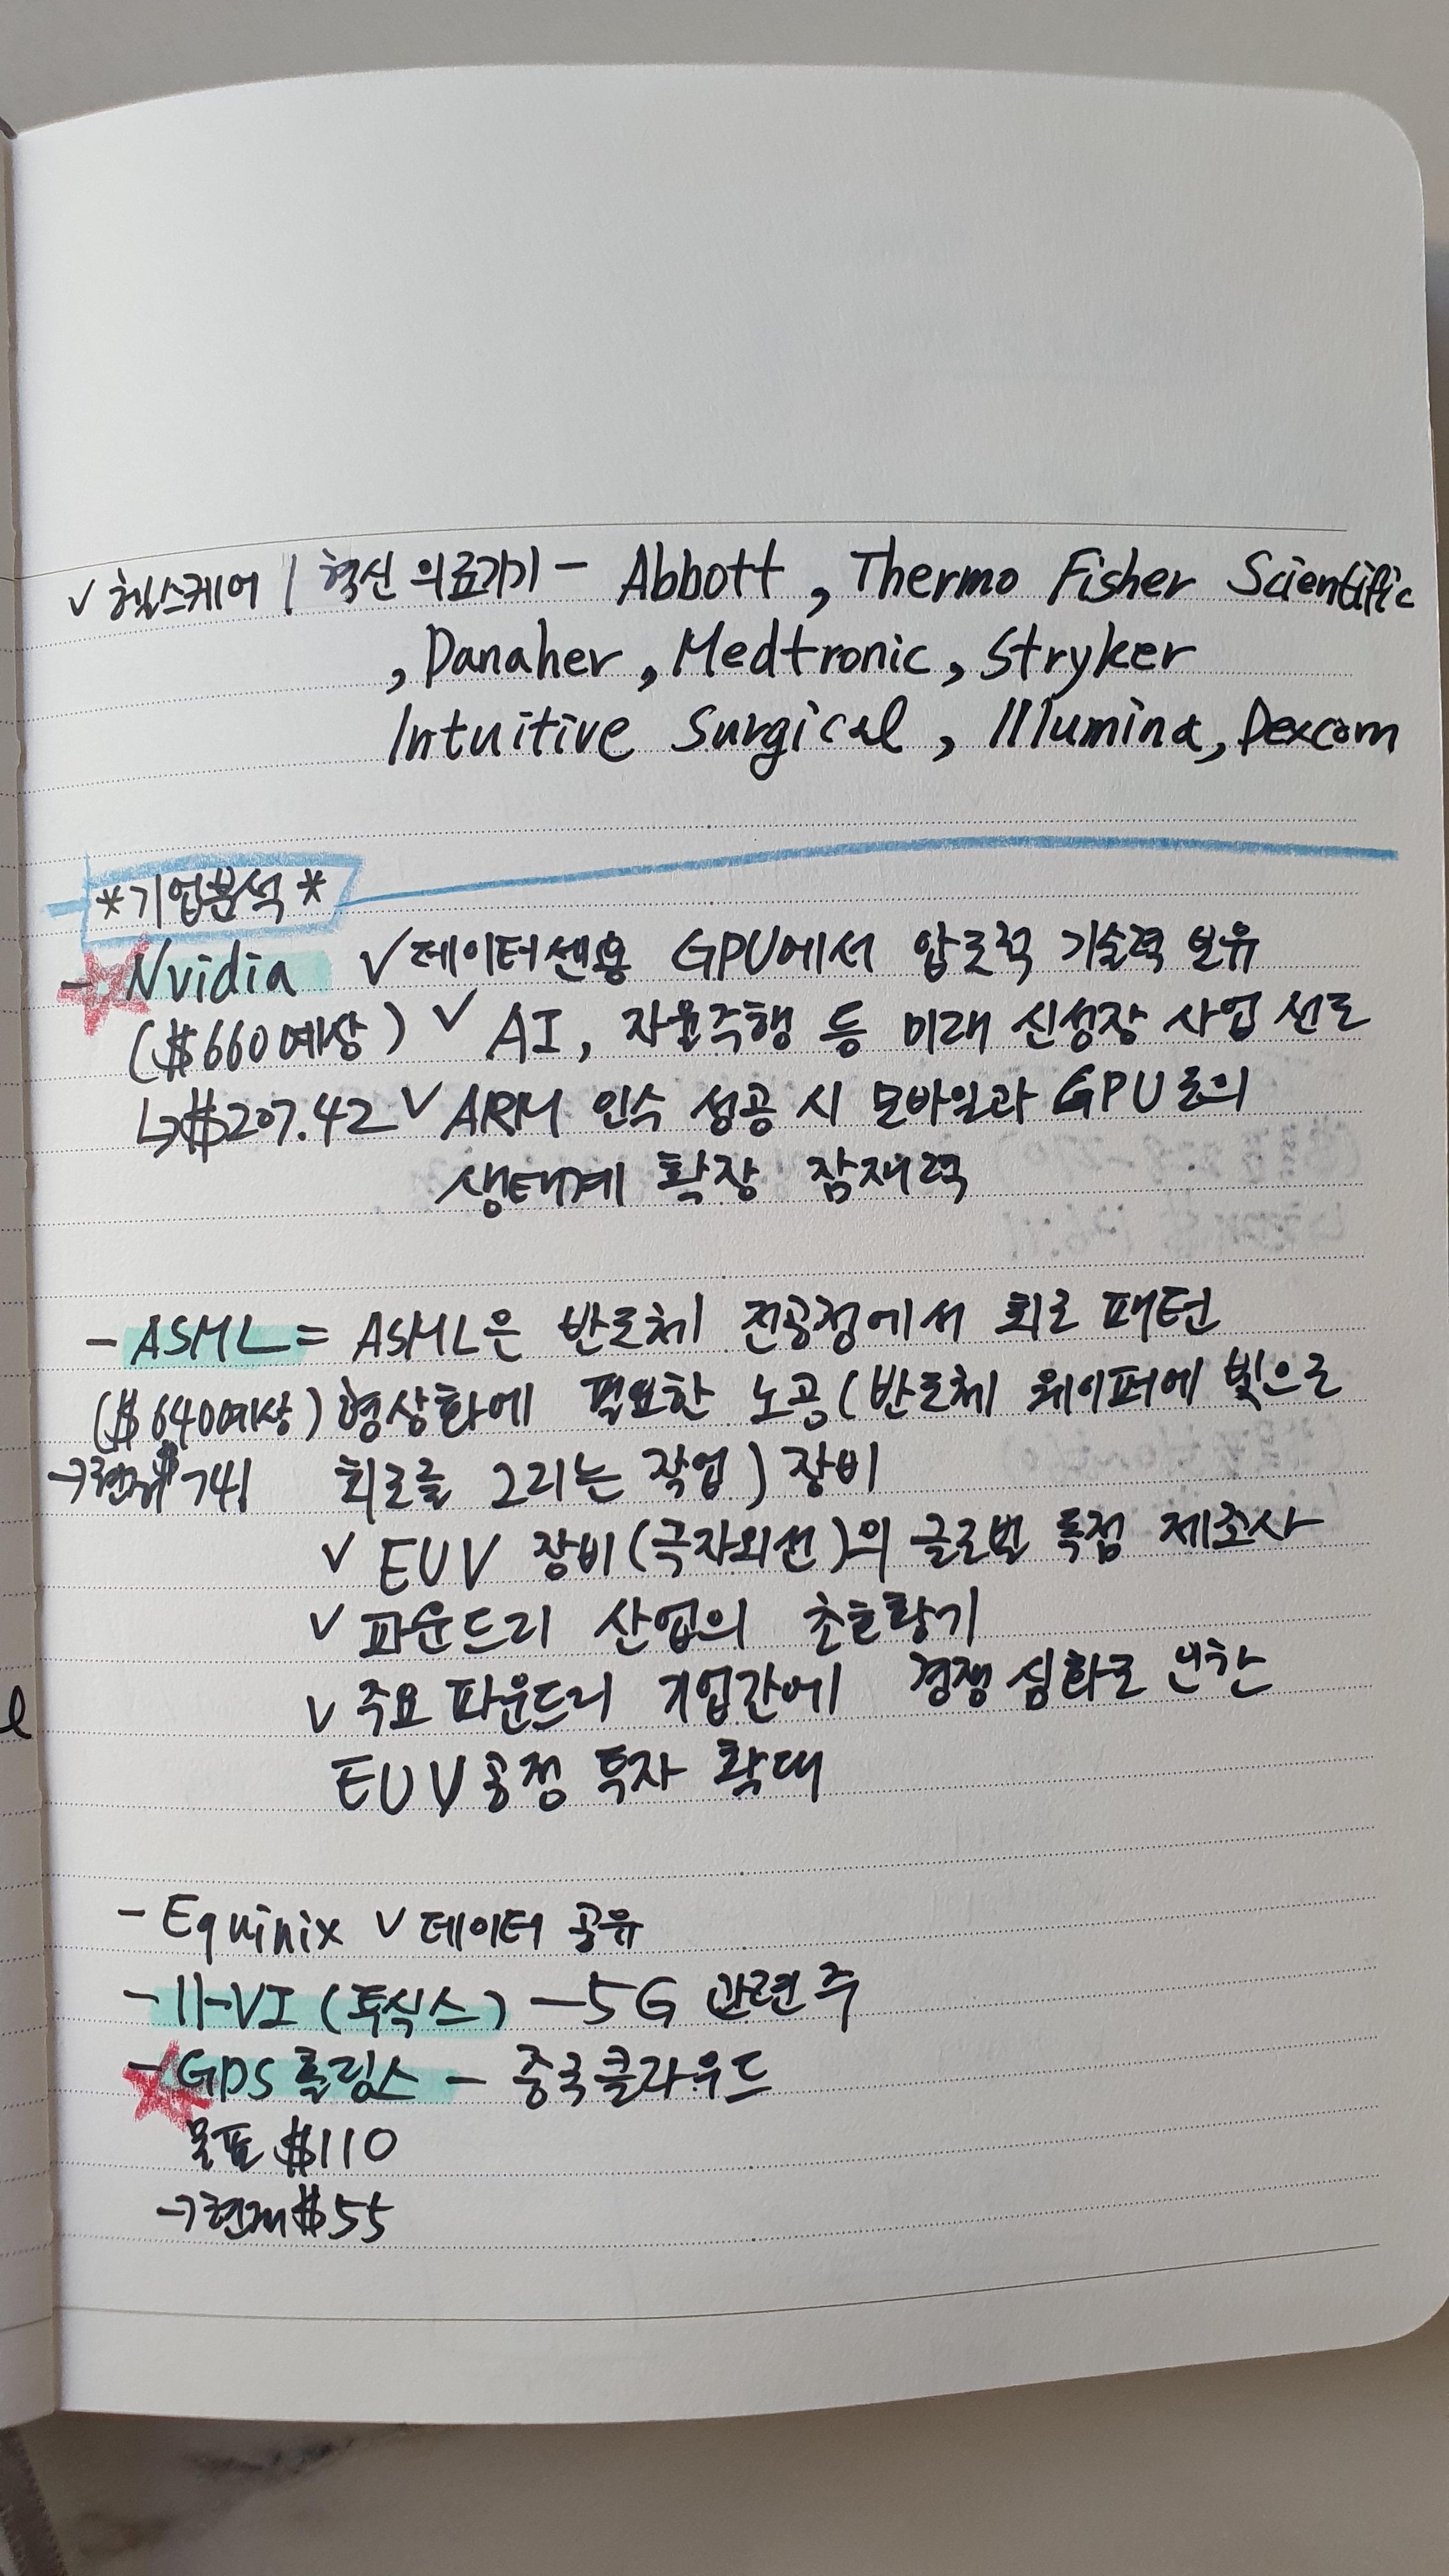 ✓ 헬스케어 / 혁신 의료기기 - Abbott, Thermo Fisher Scientific
, Danaher, Medtronic, Stryker
Intuitive Surgical, Illumina, Dexcom
*기업분석*
- Nvidia ✓ 데이터센용 GPU에서 압도적 기술력 보유
($660예상) ✓ AI, 자율주행 등 미래 신성장 사업 선도
↳$207.42 ✓ ARM 인수 성공 시 모바일과 GPU로의
생태계 확장 잠재력
- ASML = ASML은 반도체 전공정에서 회로 패턴
($640예상) 형상화에 필요한 노광(반도체 웨이퍼에 빛으로
→현재$741 회로를 그리는 작업) 장비
✓ EUV 장비(극자외선)의 글로벌 독점 제조사
✓ 파운드리 산업의 초호황기
✓ 주요 파운드리 기업간에 경쟁 심화로 인한
EUV공정 투자 확대
- Equinix ✓ 데이터 공유
- II-VI (투식스) - 5G 관련주
- GDS 홀딩스 - 중국클라우드
목표 $110
→현재$55